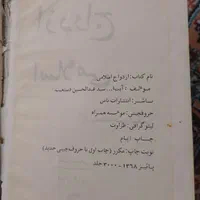 نام کتاب: ازدواج اسلامی
مؤلف: آیة‌ا... سید عبدالحسین دستغیب
ناشر: انتشارات ناس
حروفچینی: مؤسسه همراه
لیتوگرافی: طراوت
چاپ: پیام
نوبت چاپ: مکرر (چاپ اول با حروفچینی جدید)
۳۰۰۰ جلد